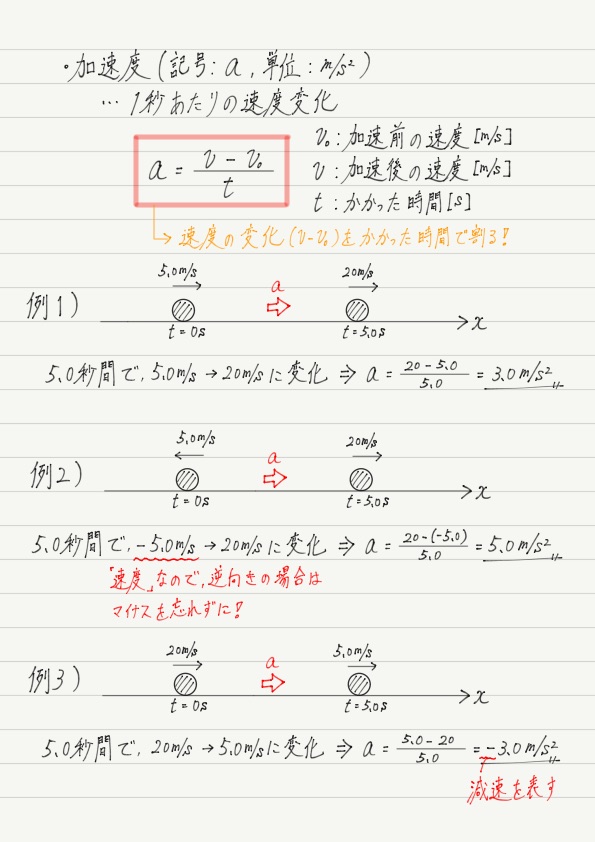 ・加速度(記号：a，単位：m/s²)
… 1秒あたりの速度変化
a = (v - v₀)/t
v₀：加速前の速度[m/s]
v：加速後の速度[m/s]
t：かかった時間[s]
→速度の変化(v-v₀)をかかった時間で割る!
例1)
5.0m/s
a
20m/s
t=0s
t=5.0s
x
5.0秒間で，5.0m/s→20m/sに変化 ⇒ a = (20-5.0)/5.0 = 3.0m/s²
例2)
5.0m/s
a
20m/s
t=0s
t=5.0s
x
5.0秒間で，-5.0m/s→20m/sに変化 ⇒ a = (20-(-5.0))/5.0 = 5.0m/s²
「速度」なので，逆向きの場合は
マイナスを忘れずに!
例3)
20m/s
a
5.0m/s
t=0s
t=5.0s
x
5.0秒間で，20m/s→5.0m/sに変化 ⇒ a = (5.0-20)/5.0 = -3.0m/s²
減速を表す